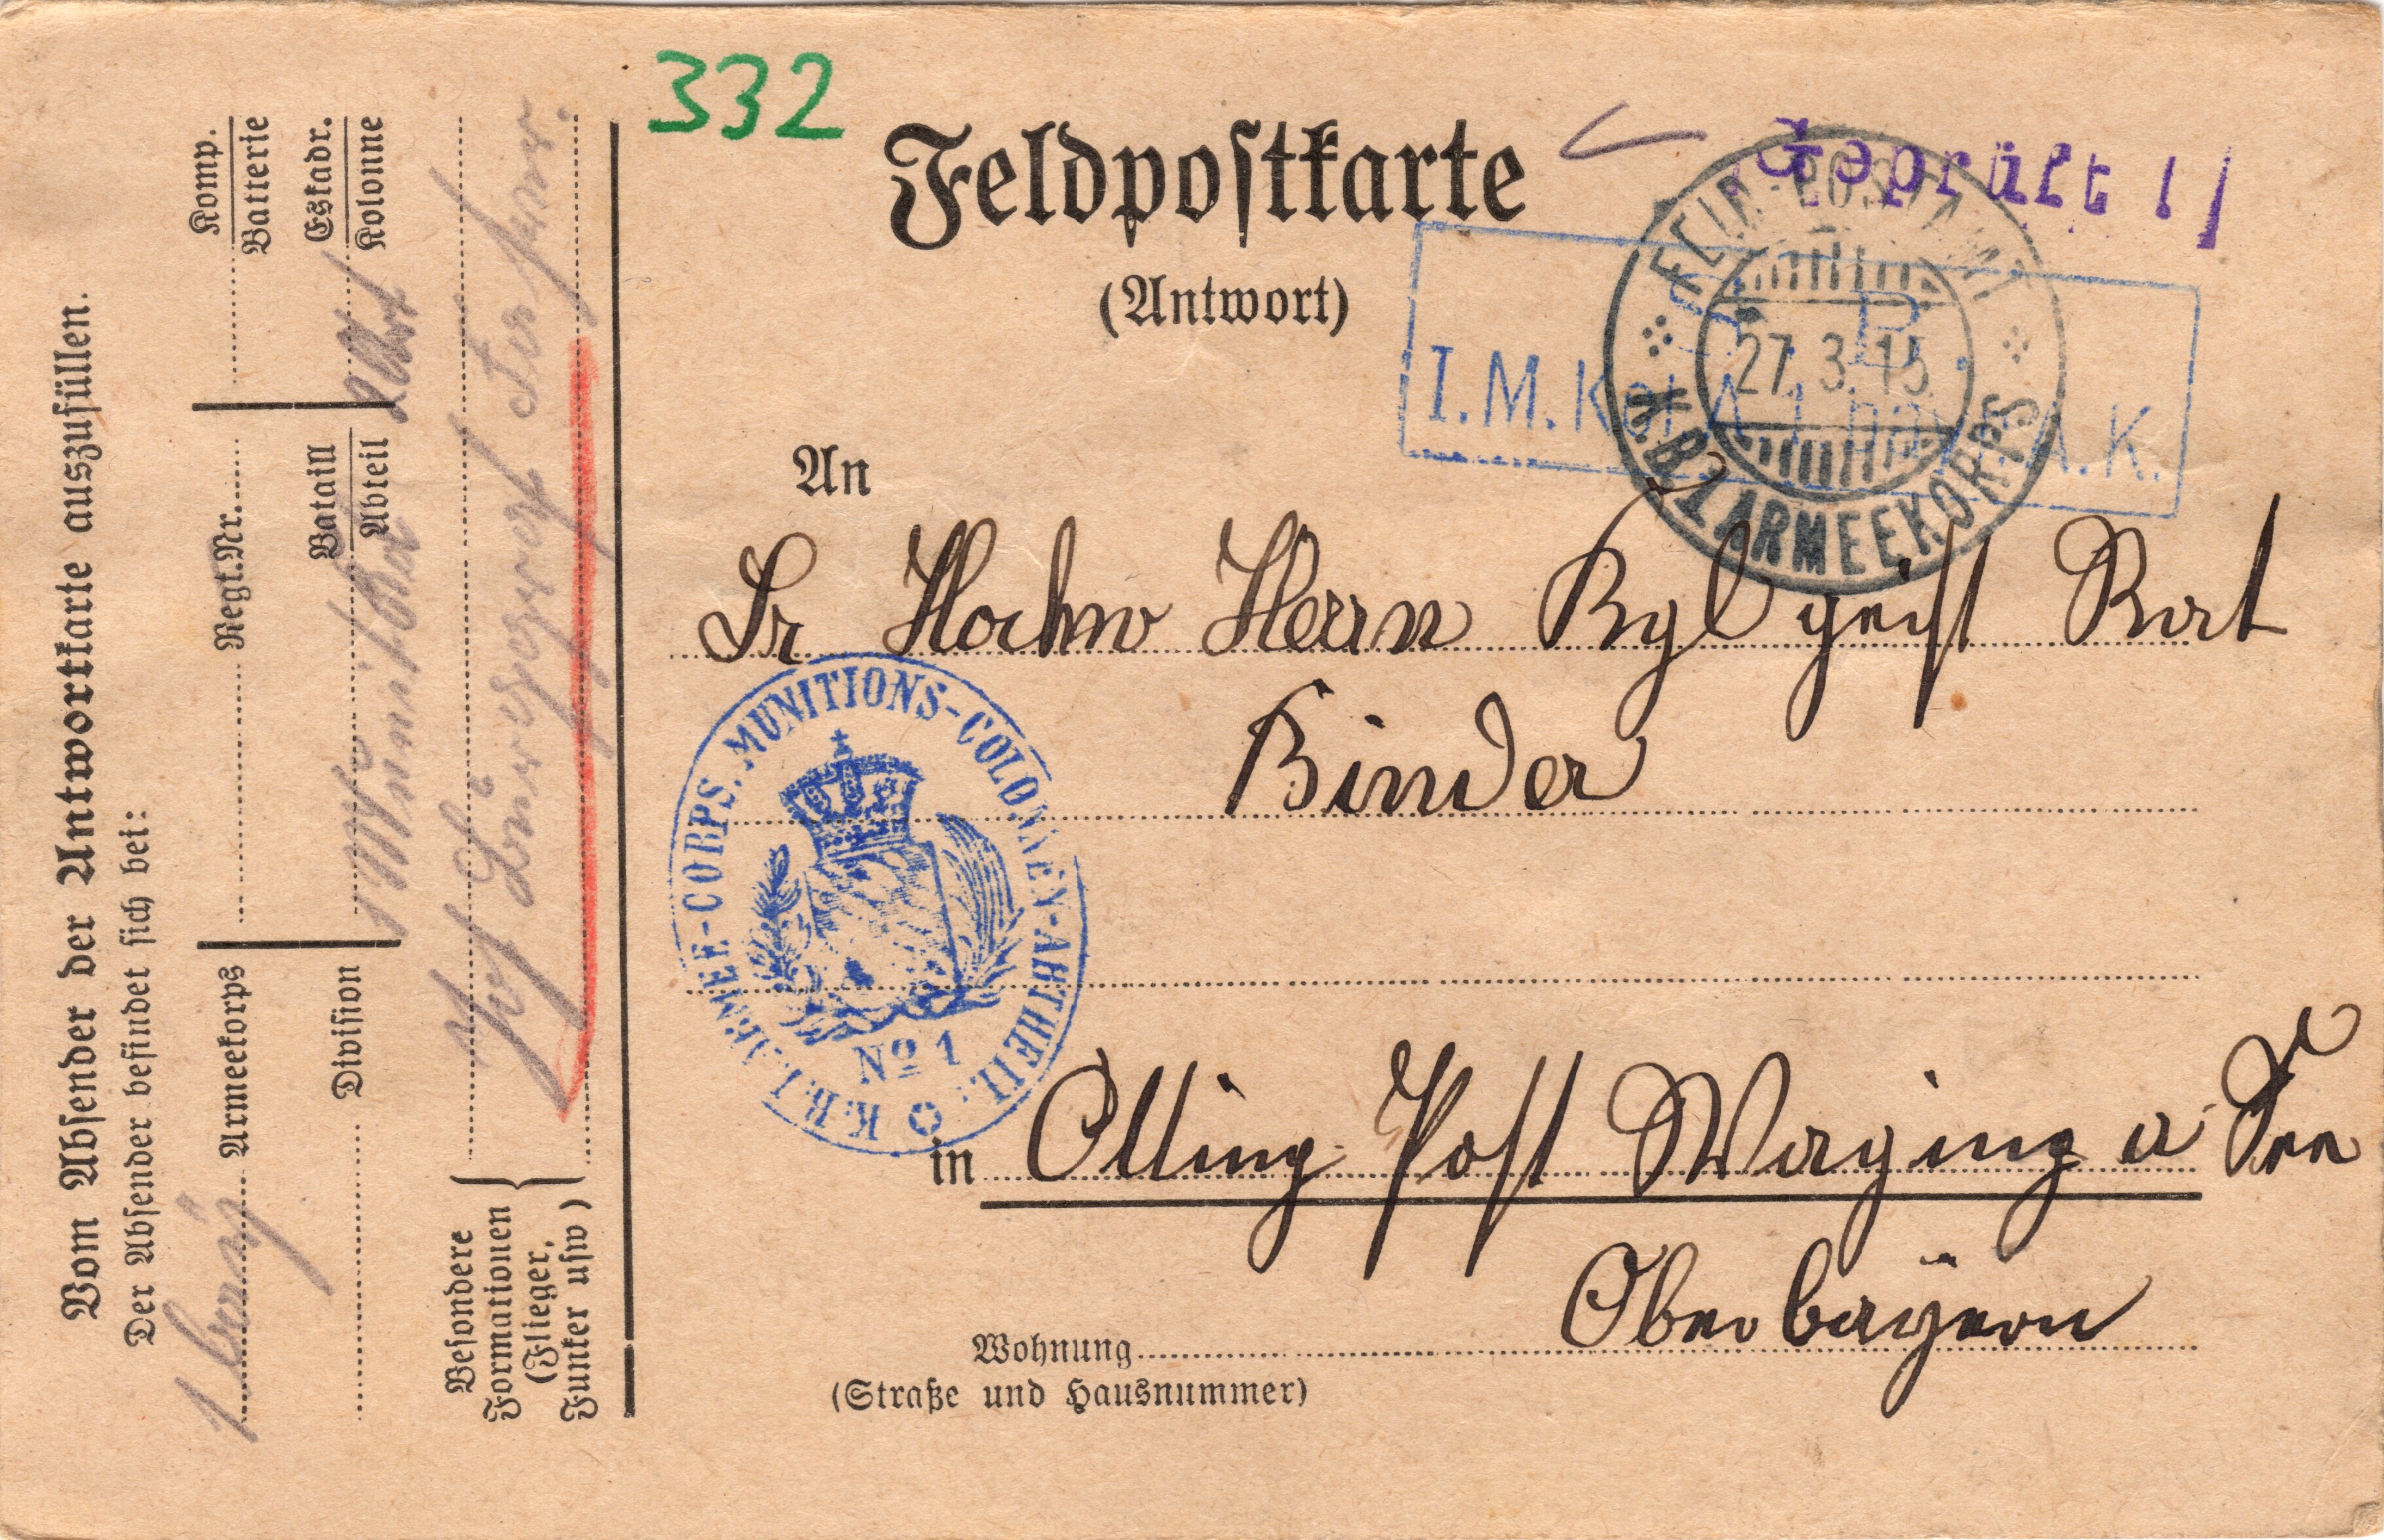 332
Feldpostkarte
(Antwort)
Geprüft
FELD-POSTAMT
27.3.15
K.B.I.ARMEEKORPS
S. B.
I. M. Kol. A. 1. bay. A. K.
An
Sr Hochw Herrn Kgl geistl Rat
Binder
K. B. I. ARMEE-CORPS. MUNITIONS-COLONNEN-ABTHEIL.
No 1
in Otting Post Waging a See
Oberbayern
Wohnung
(Straße und Hausnummer)
Vom Absender der Antwortkarte auszufüllen.
Der Absender befindet sich bei:
1 bay. Armeekorps
Regt. Nr.
Komp.
Batterie
Division
Bataill
Abteil
Eskadr.
Kolonne
Munit. Kol. Abt
Besondere
Formationen
(Flieger,
Funker usw)